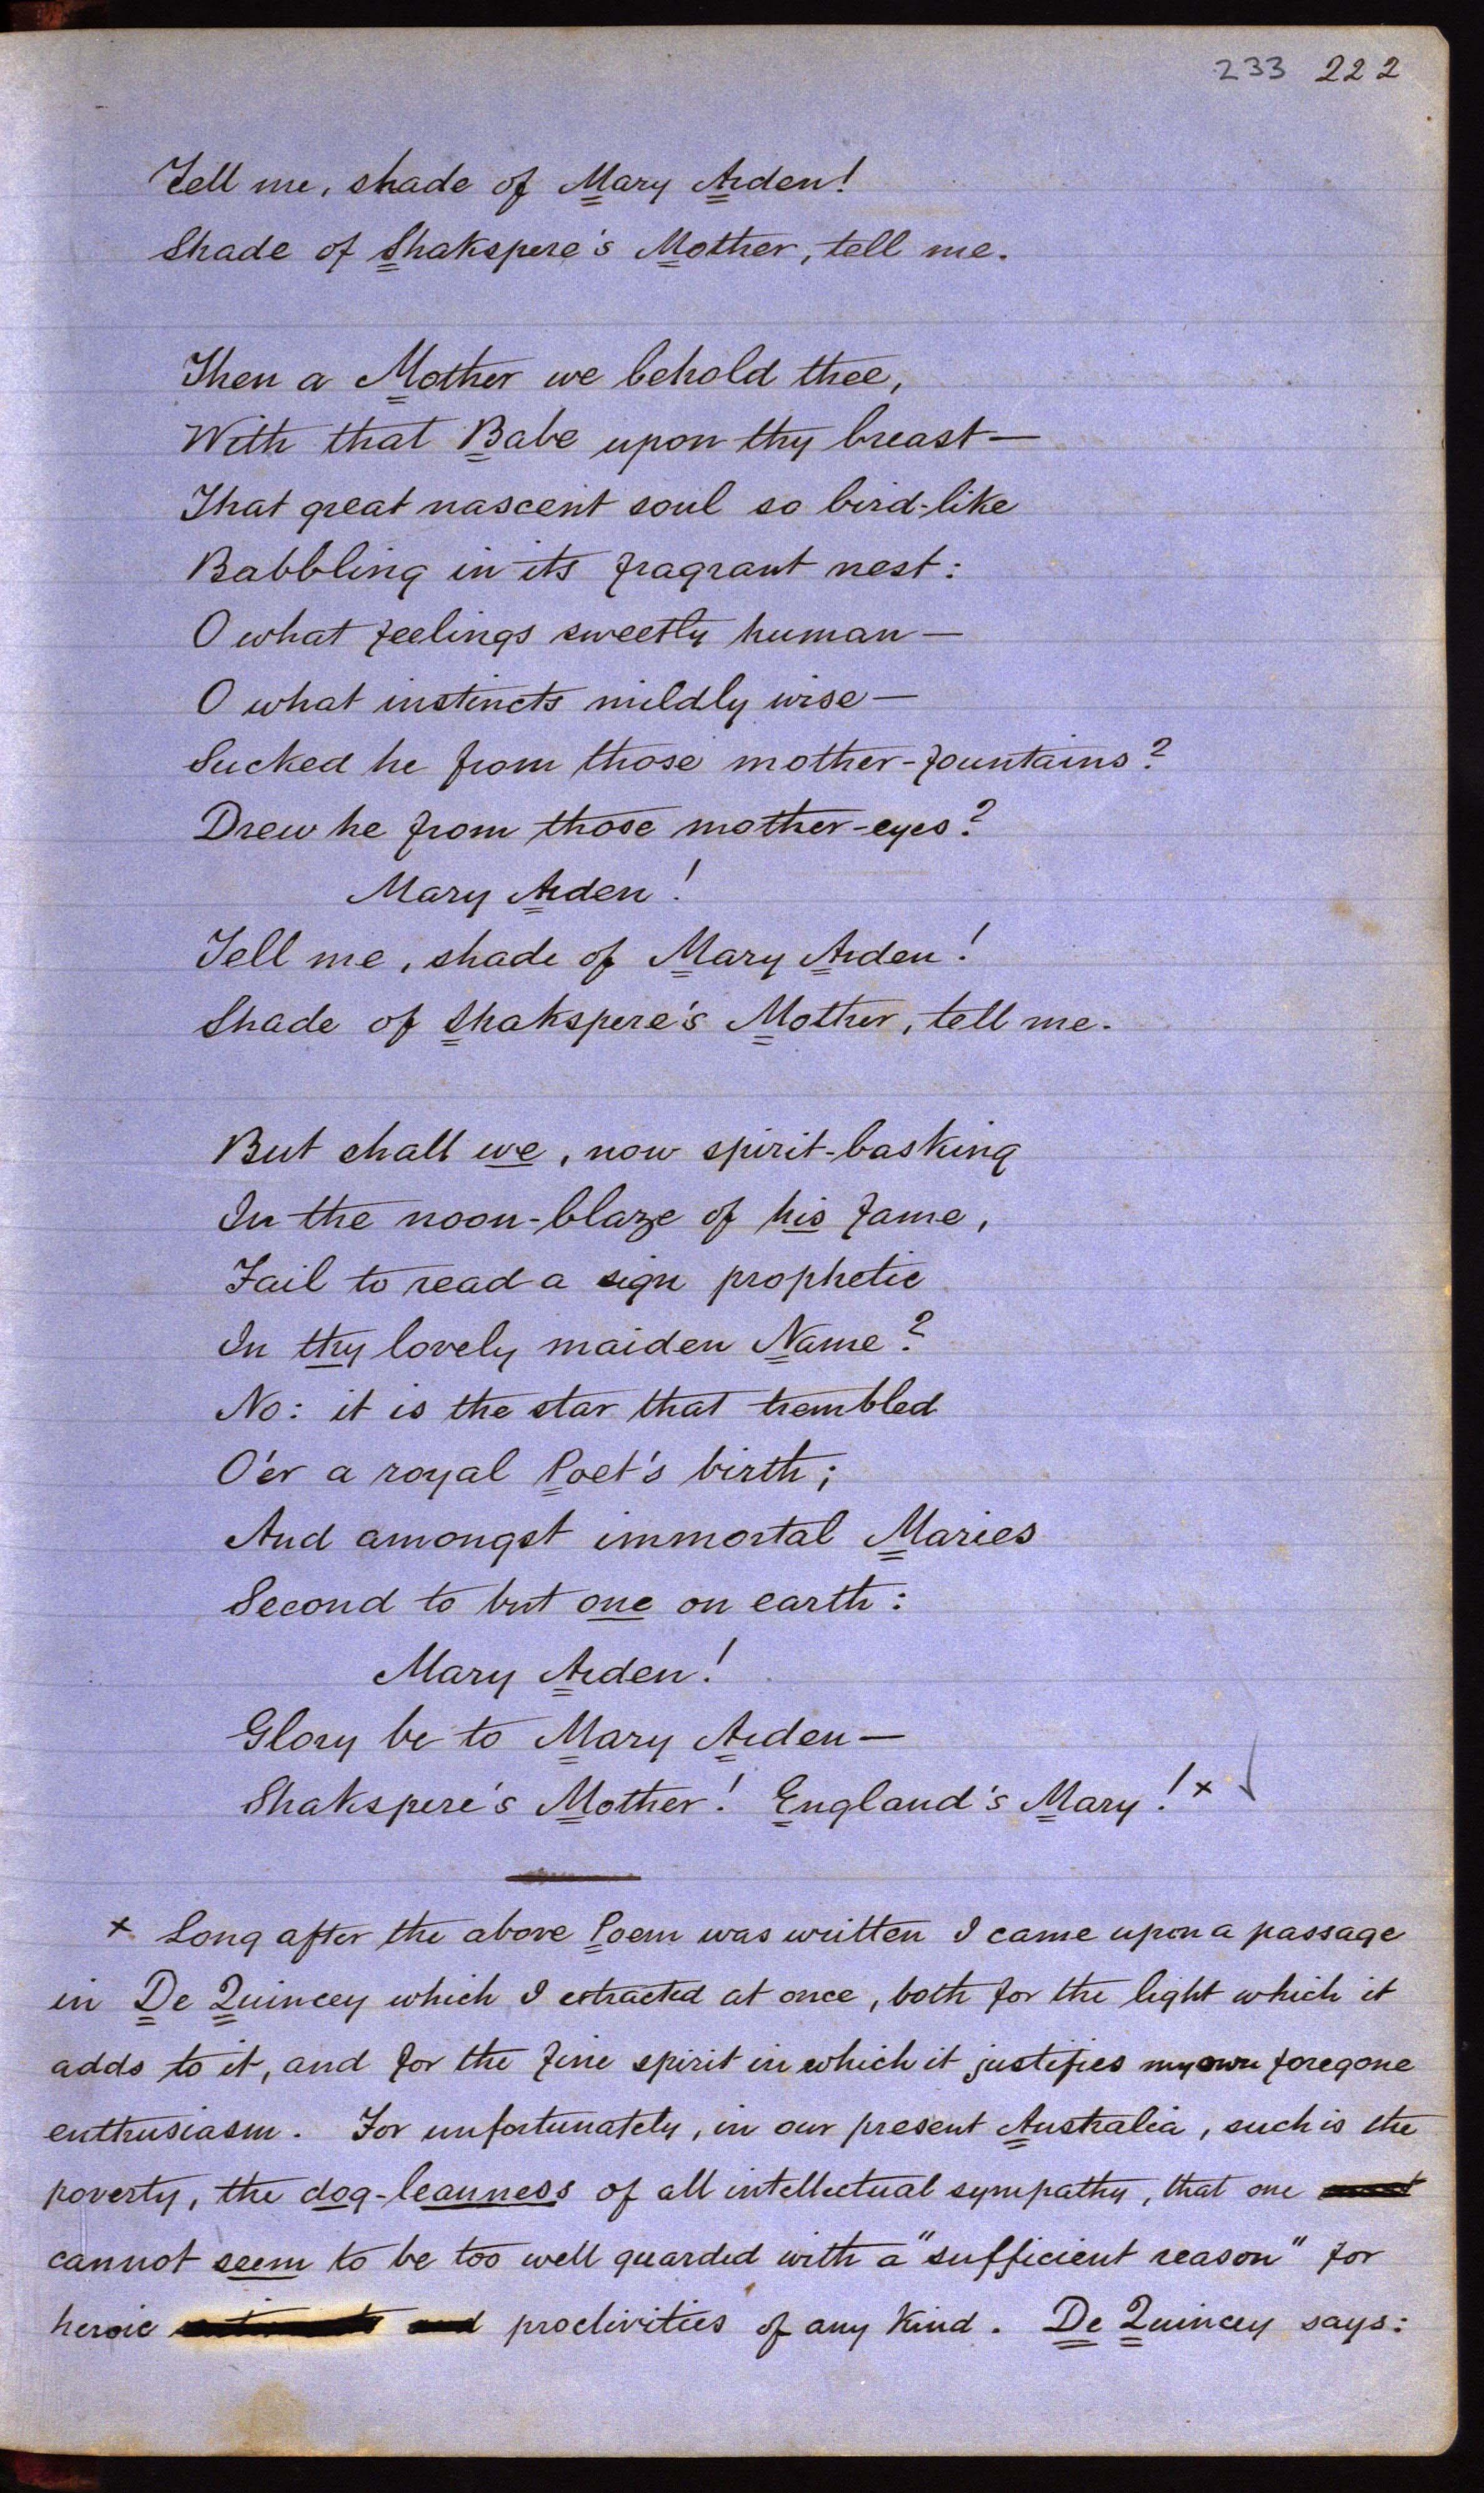 233 222
Tell me, shade of Mary Arden!
Shade of Shakspere's Mother, tell me.
Then a Mother we behold thee,
With that Babe upon thy breast—
That great nascent soul so bird-like
Babbling in its fragrant nest:
O what feelings sweetly human—
O what instincts mildly wise—
Sucked he from those mother-fountains?
Drew he from those mother-eyes?
Mary Arden!
Tell me, shade of Mary Arden!
Shade of Shakspere's Mother, tell me.
But shall we, now spirit-basking
In the noon-blaze of his fame,
Fail to read a sign prophetic
In thy lovely maiden Name?
No: it is the star that trembled
O'er a royal Poet's birth;
And amongst immortal Maries
Second to but one on earth:
Mary Arden!
Glory be to Mary Arden—
Shakspere's Mother! England's Mary!×
× Long after the above Poem was written I came upon a passage
in De Quincey which I extracted at once, both for the light which it
adds to it, and for the fine spirit in which it justifies my own foregone
enthusiasm. For unfortunately, in our present Australia, such is the
poverty, the dog-leanness of all intellectual sympathy, that one
cannot seem to be too well guarded with a "sufficient reason" for
heroic proclivities of any kind. De Quincey says: